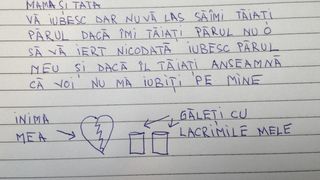 MAMA ȘI TATA
VĂ IUBESC DAR NU VĂ LAS SĂ ÎMI TĂIAȚI
PĂRUL DACĂ ÎMI TĂIAȚI PĂRUL NU O
SĂ VĂ IERT NICODATĂ IUBESC PĂRUL
MEU ȘI DACĂ ÎL TĂIAȚI ANSEAMNĂ
CĂ VOI NU MA IUBIȚI PE MINE
INIMA
MEA
GĂLEȚI CU
LACRIMILE MELE